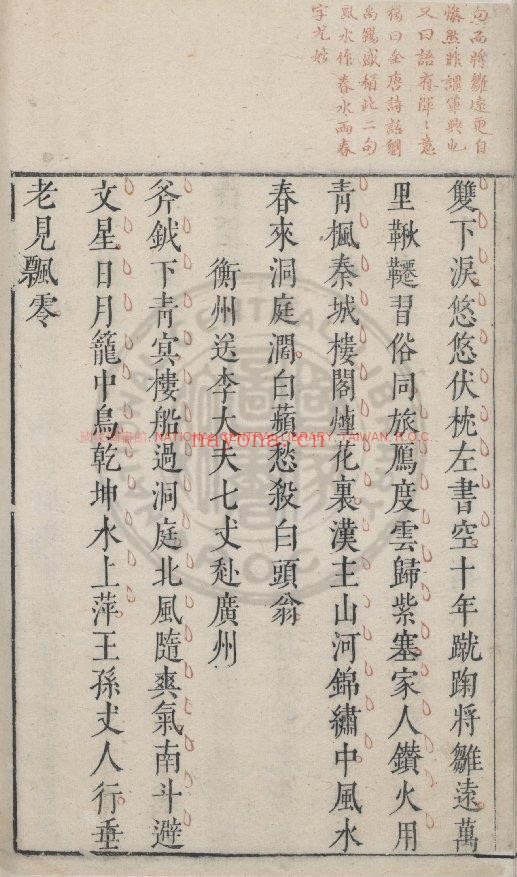 句而將雛遠更自
燦然昨謂軍興也
又曰語有渾々意
楊曰全唐詩話劉
禹錫盛稱此二句
風水作春水兩春
字尤妙
雙下淚悠悠伏枕左書空十年蹴踘將雛遠萬
里鞦韆習俗同旅鴈度雲歸紫塞家人鑽火用
青楓秦城樓閣煙花裏漢主山河錦繡中風水
春來洞庭濶白蘋愁殺白頭翁
衡州送李大夫七丈赴廣州
斧鉞下青冥樓船過洞庭北風隨爽氣南斗避
文星日月籠中鳥乾坤水上萍王孫丈人行垂
老見飄零
國家圖書館 NATIONAL CENTRAL LIBRARY, TAIWAN, R.O.C.